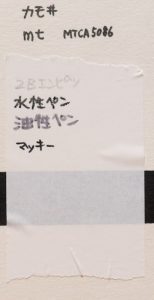 カモ井
mt MTCA5086
2Bエンピツ
水性ペン
油性ペン
マッキー